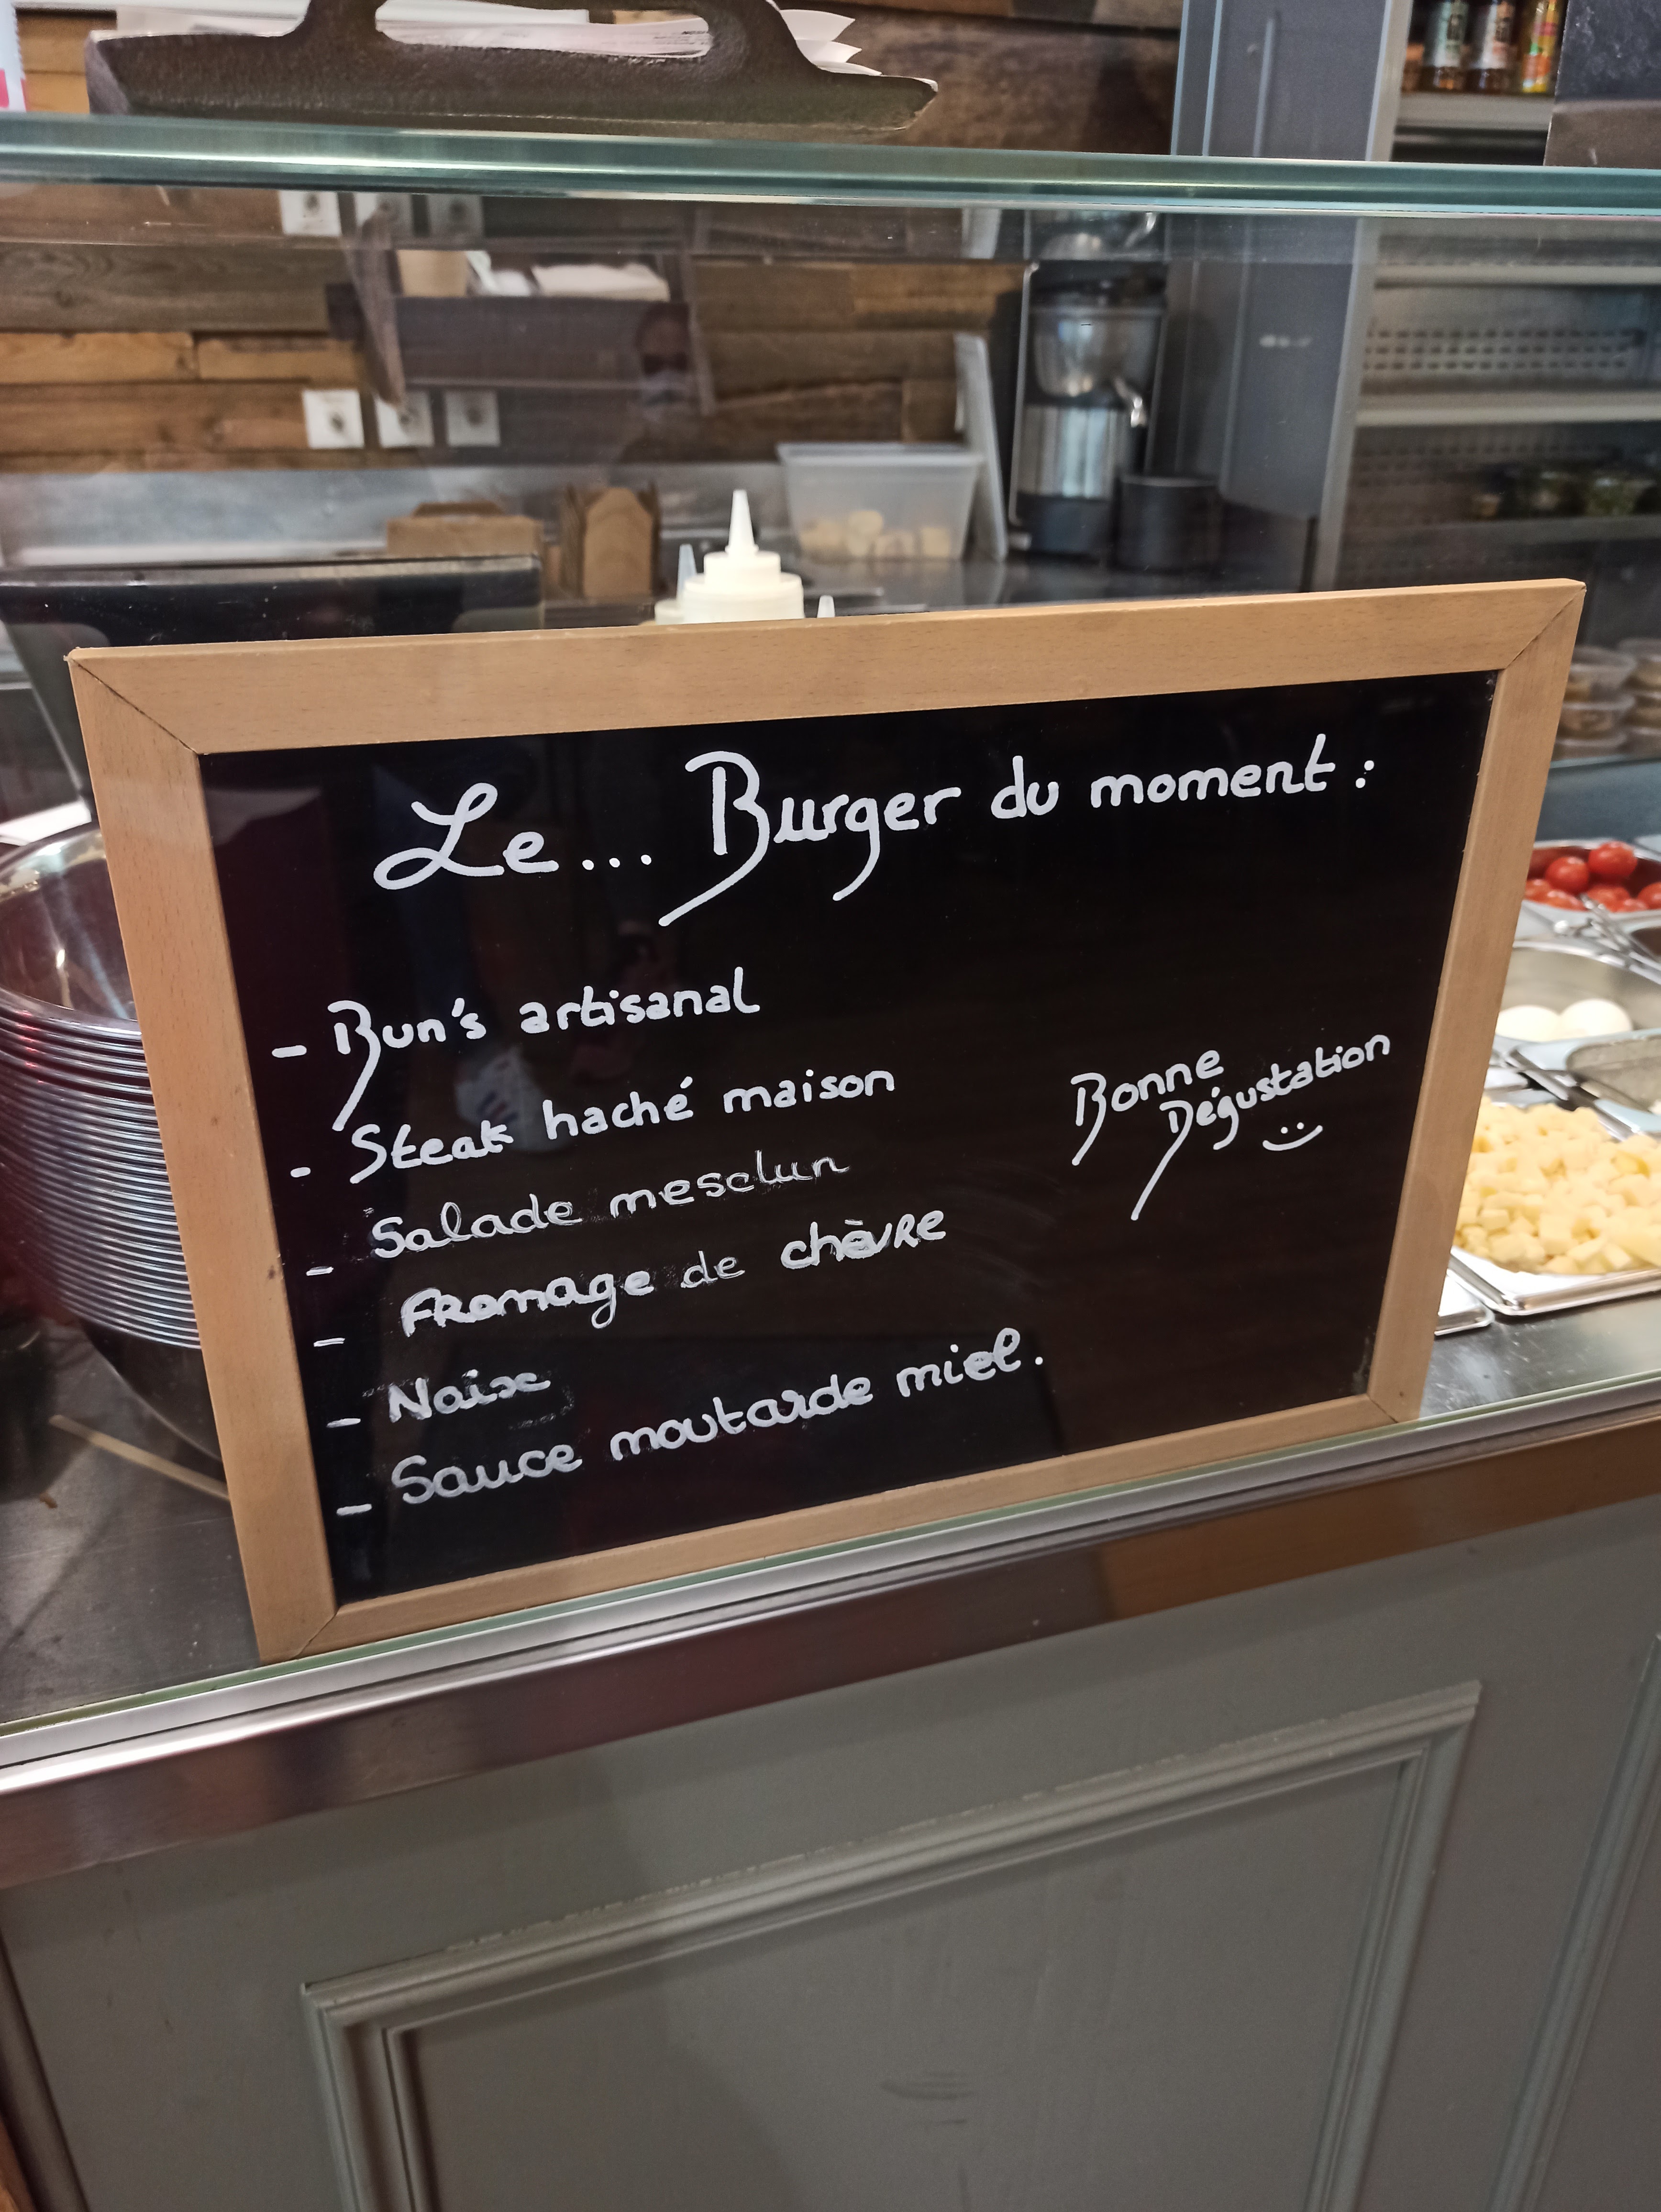 Le... Burger du moment :
- Bun's artisanal
- Steak haché maison
- Salade mesclun
- Fromage de chèvre
- Noix
- Sauce moutarde miel.
Bonne
Dégustation